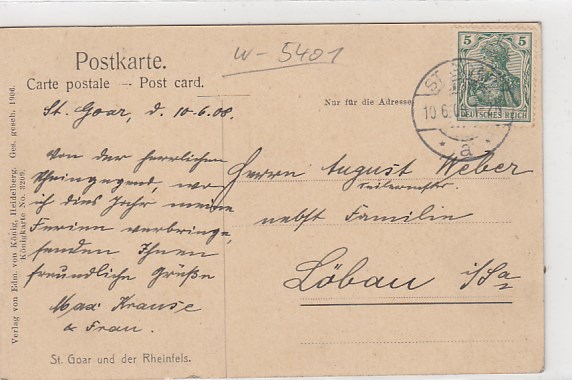 w - 5401
Postkarte.
Carte postale — Post card.
St. Goar, d. 10-6.08.
Von der herrlichen
Rheingegend, wo
ich dies Jahr meine
Ferien verbringe,
senden Ihnen
freundliche Grüße
Max Krause
& Frau.
St. Goar und der Rheinfels.
Verlag von Edm. von König, Heidelberg. Ges. gesch. 1906.
Königkarte No. 3209.
Nur für die Adresse
5 5
DEUTSCHES REICH
ST.
10.6.
* a
Herrn August Weber
Seilermstr.
nebst Familie
Löbau i/Sa